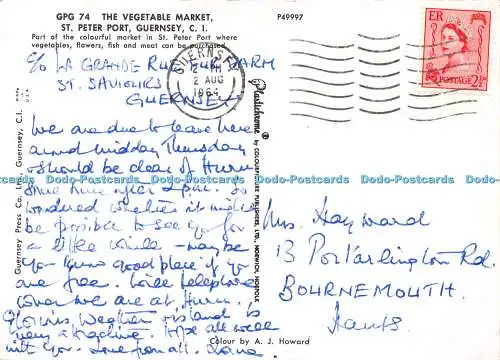 GPG 74 THE VEGETABLE MARKET,
ST. PETER PORT, GUERNSEY, C. I.
Part of the colourful market in St. Peter Port where
vegetables, flowers, fish and meat can be purchased.
P49997
C/o LA GRANDE RUE FARM
ST. SAVIOURS
GUERNSEY
GUERNSEY
2 AUG
1964
E R
POSTAGE 2½
We are due to leave here
around midday Thursday
& should be clear of Hurn
some time after 2pm. So
wondered whether it might
be possible to see you for
a little while - maybe
you know good place if you
are free. Will telephone
when we are at Hurn.
Glorious weather & island is
very attractive. Hope all well
with you. Love from all.
Mrs. Hayward
13 Portarlington Rd.
BOURNEMOUTH.
Hants
Guernsey Press Co. Ltd., Guernsey, C.I.
Plastichrome ® by COLOURPICTURE PUBLISHERS, LTD., NORWICH, NORFOLK
Colour by A. J. Howard
Dodo-Postcards Dodo-Postcards Dodo-Postcards Dodo-Postcards